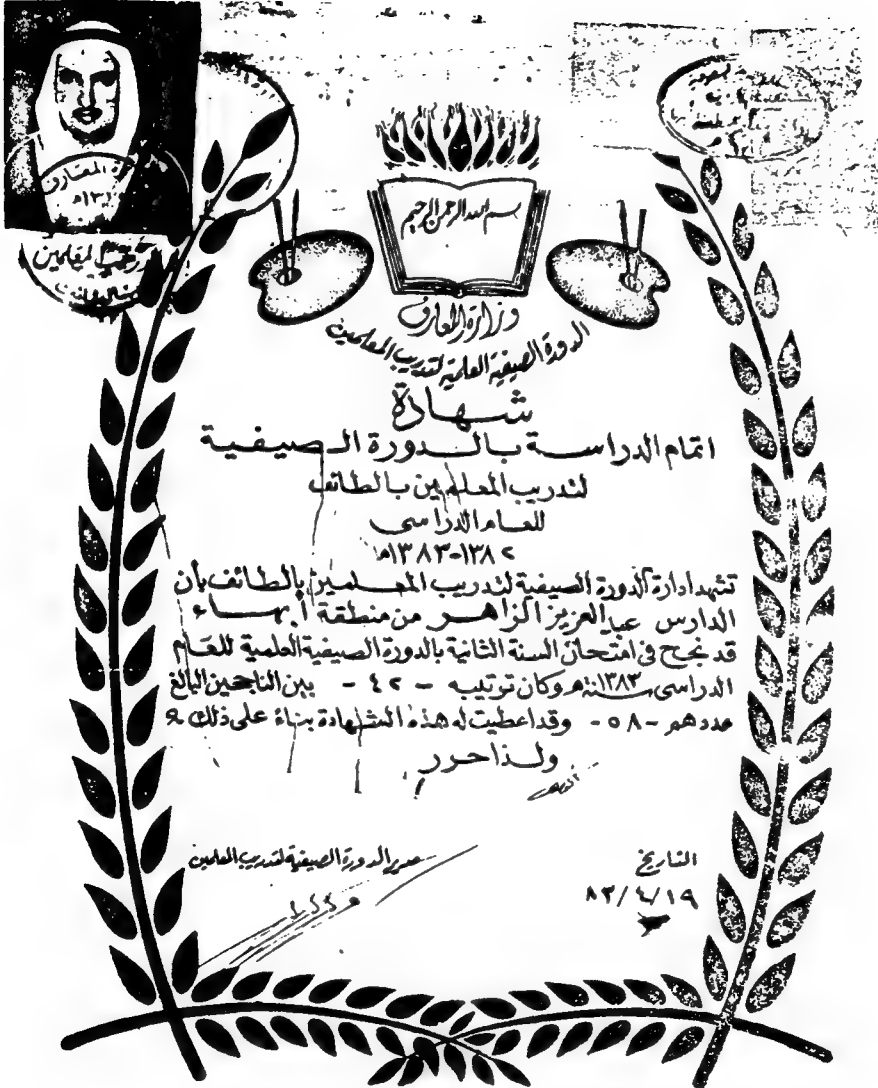 بسم الله الرحمن الرحيم
وزارة المعارف
الدورة الصيفية العلمية لتدريب المعلمين
شهادة
اتمام الدراسة بالدورة الصيفية
لتدريب المعلمين بالطائف
للعام الدراسى
١٣٨٢-١٣٨٣ه
تشهد ادارة الدورة الصيفية لتدريب المعلمين بالطائف بأن
الدارس عبد العزيز الزاهر من منطقة أبهاء
قد نجح فى امتحان السنة الثانية بالدورة الصيفية العلمية للعام
الدراسى سنة ١٣٨٣ه وكان ترتيبه - ٤٢ - بين الناجحين البالغ
عددهم - ٥٨ - وقد اعطيت له هذه الشهادة بناءً على ذلك
ولذا حرر
مدير الدورة الصيفية لتدريب المعلمين
التاريخ
١٩/٤/٨٣
المعارف
المعلمين